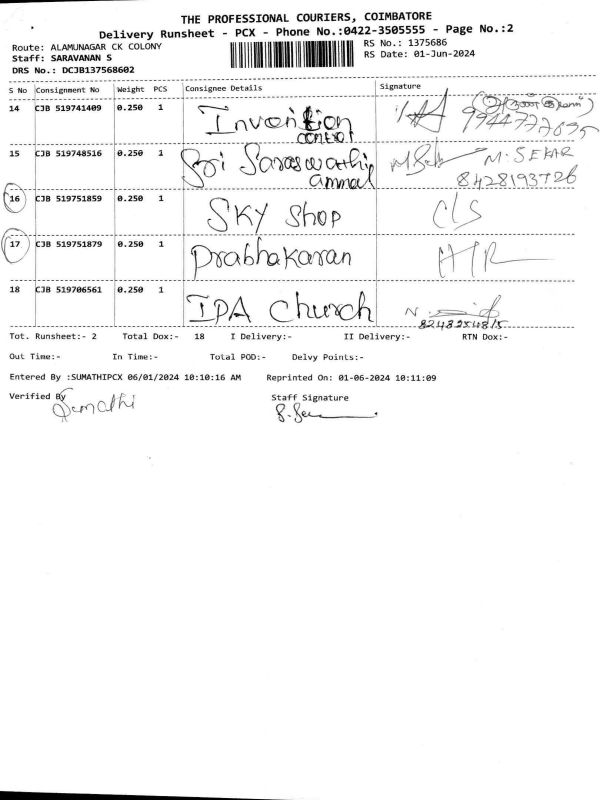 THE PROFESSIONAL COURIERS, COIMBATORE
Delivery Runsheet - PCX - Phone No.:0422-3505555 - Page No.:2
Route: ALAMUNAGAR CK COLONY RS No.: 1375686
Staff: SARAVANAN S RS Date: 01-Jun-2024
DRS No.: DCJB137568602
S No Consignment No Weight PCS Consignee Details Signature
14 CJB 519741409 0.250 1 Invention
control
9944777035
15 CJB 519748516 0.250 1 Sri Saraswathi M. SEKAR
ammal 8428193726
16 CJB 519751859 0.250 1 SKY Shop C/S
17 CJB 519751879 0.250 1 Prabhakaran
18 CJB 519706561 0.250 1 IPA Church
8248254815
Tot. Runsheet:- 2 Total Dox:- 18 I Delivery:- II Delivery:- RTN Dox:-
Out Time:- In Time:- Total POD:- Delvy Points:-
Entered By :SUMATHIPCX 06/01/2024 10:10:16 AM Reprinted On: 01-06-2024 10:11:09
Verified By Staff Signature
Sumathi